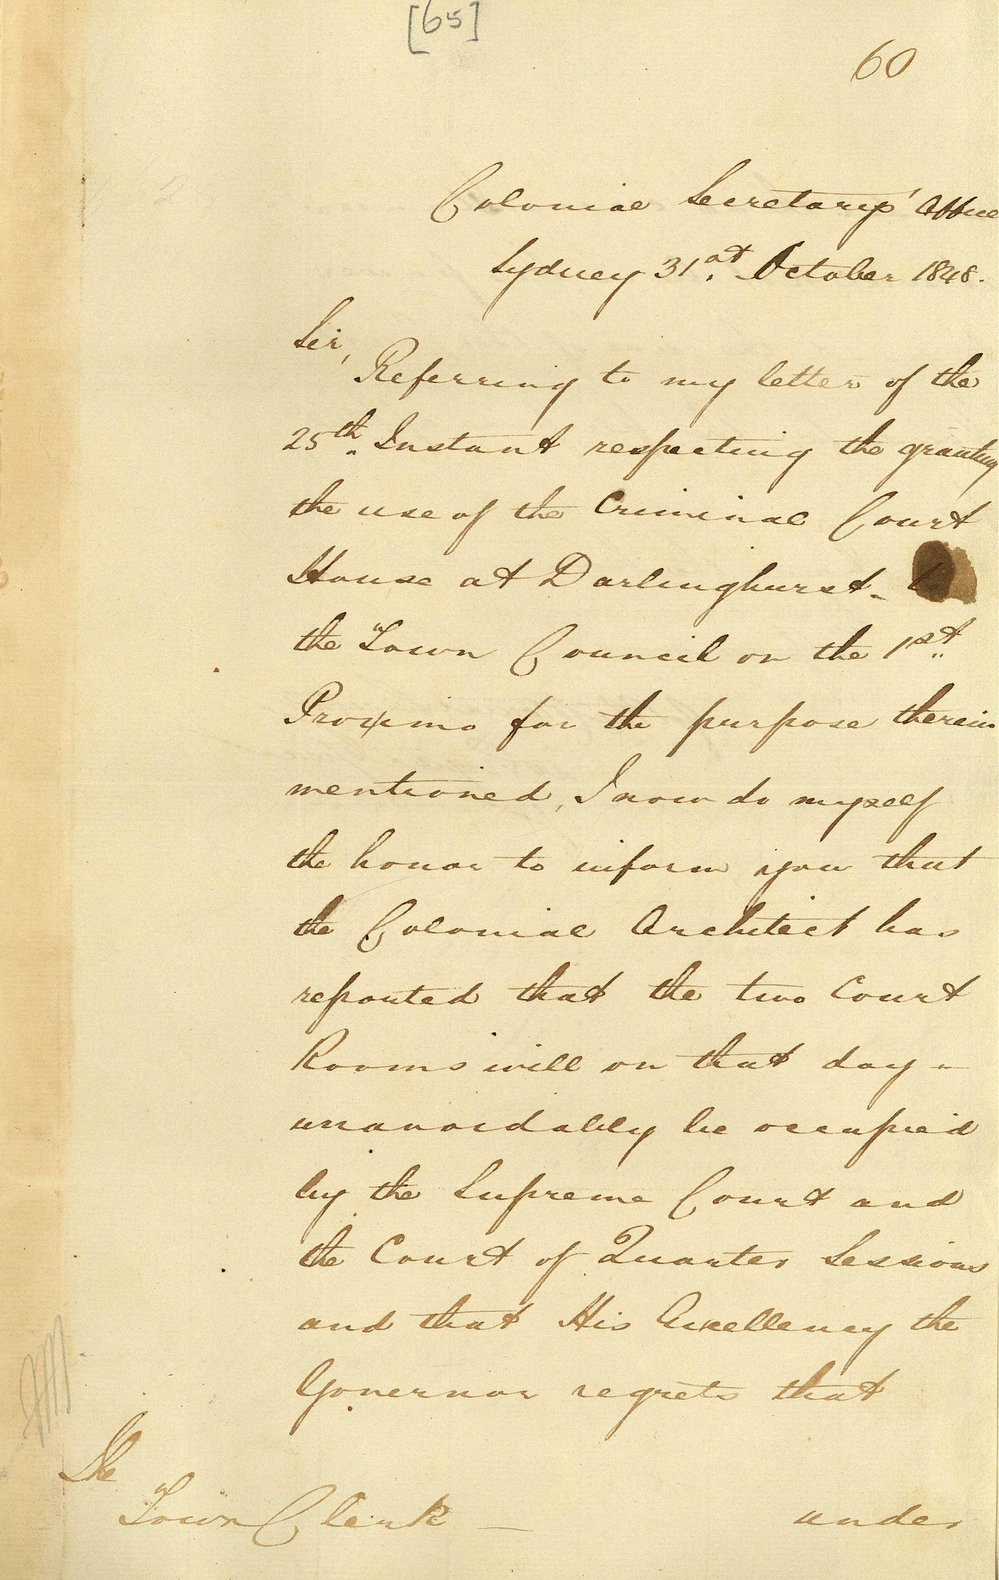 [65]
60
Colonial Secretary's Office
Sydney 31st. October 1848.
Sir,
Referring to my letter of the
25th. Instant respecting the granting
the use of the Criminal Court
House at Darlinghurst - to
the Town Council on the 1st.
Proximo for the purpose therein
mentioned, I now do myself
the honor to inform you that
the Colonial Architect has
reported that the two Court
Rooms will on that day -
unavoidably be occupied
by the Supreme Court and
the Court of Quarter Sessions
and that His Excellency the
Governor regrets that
The
Town Clerk —
under